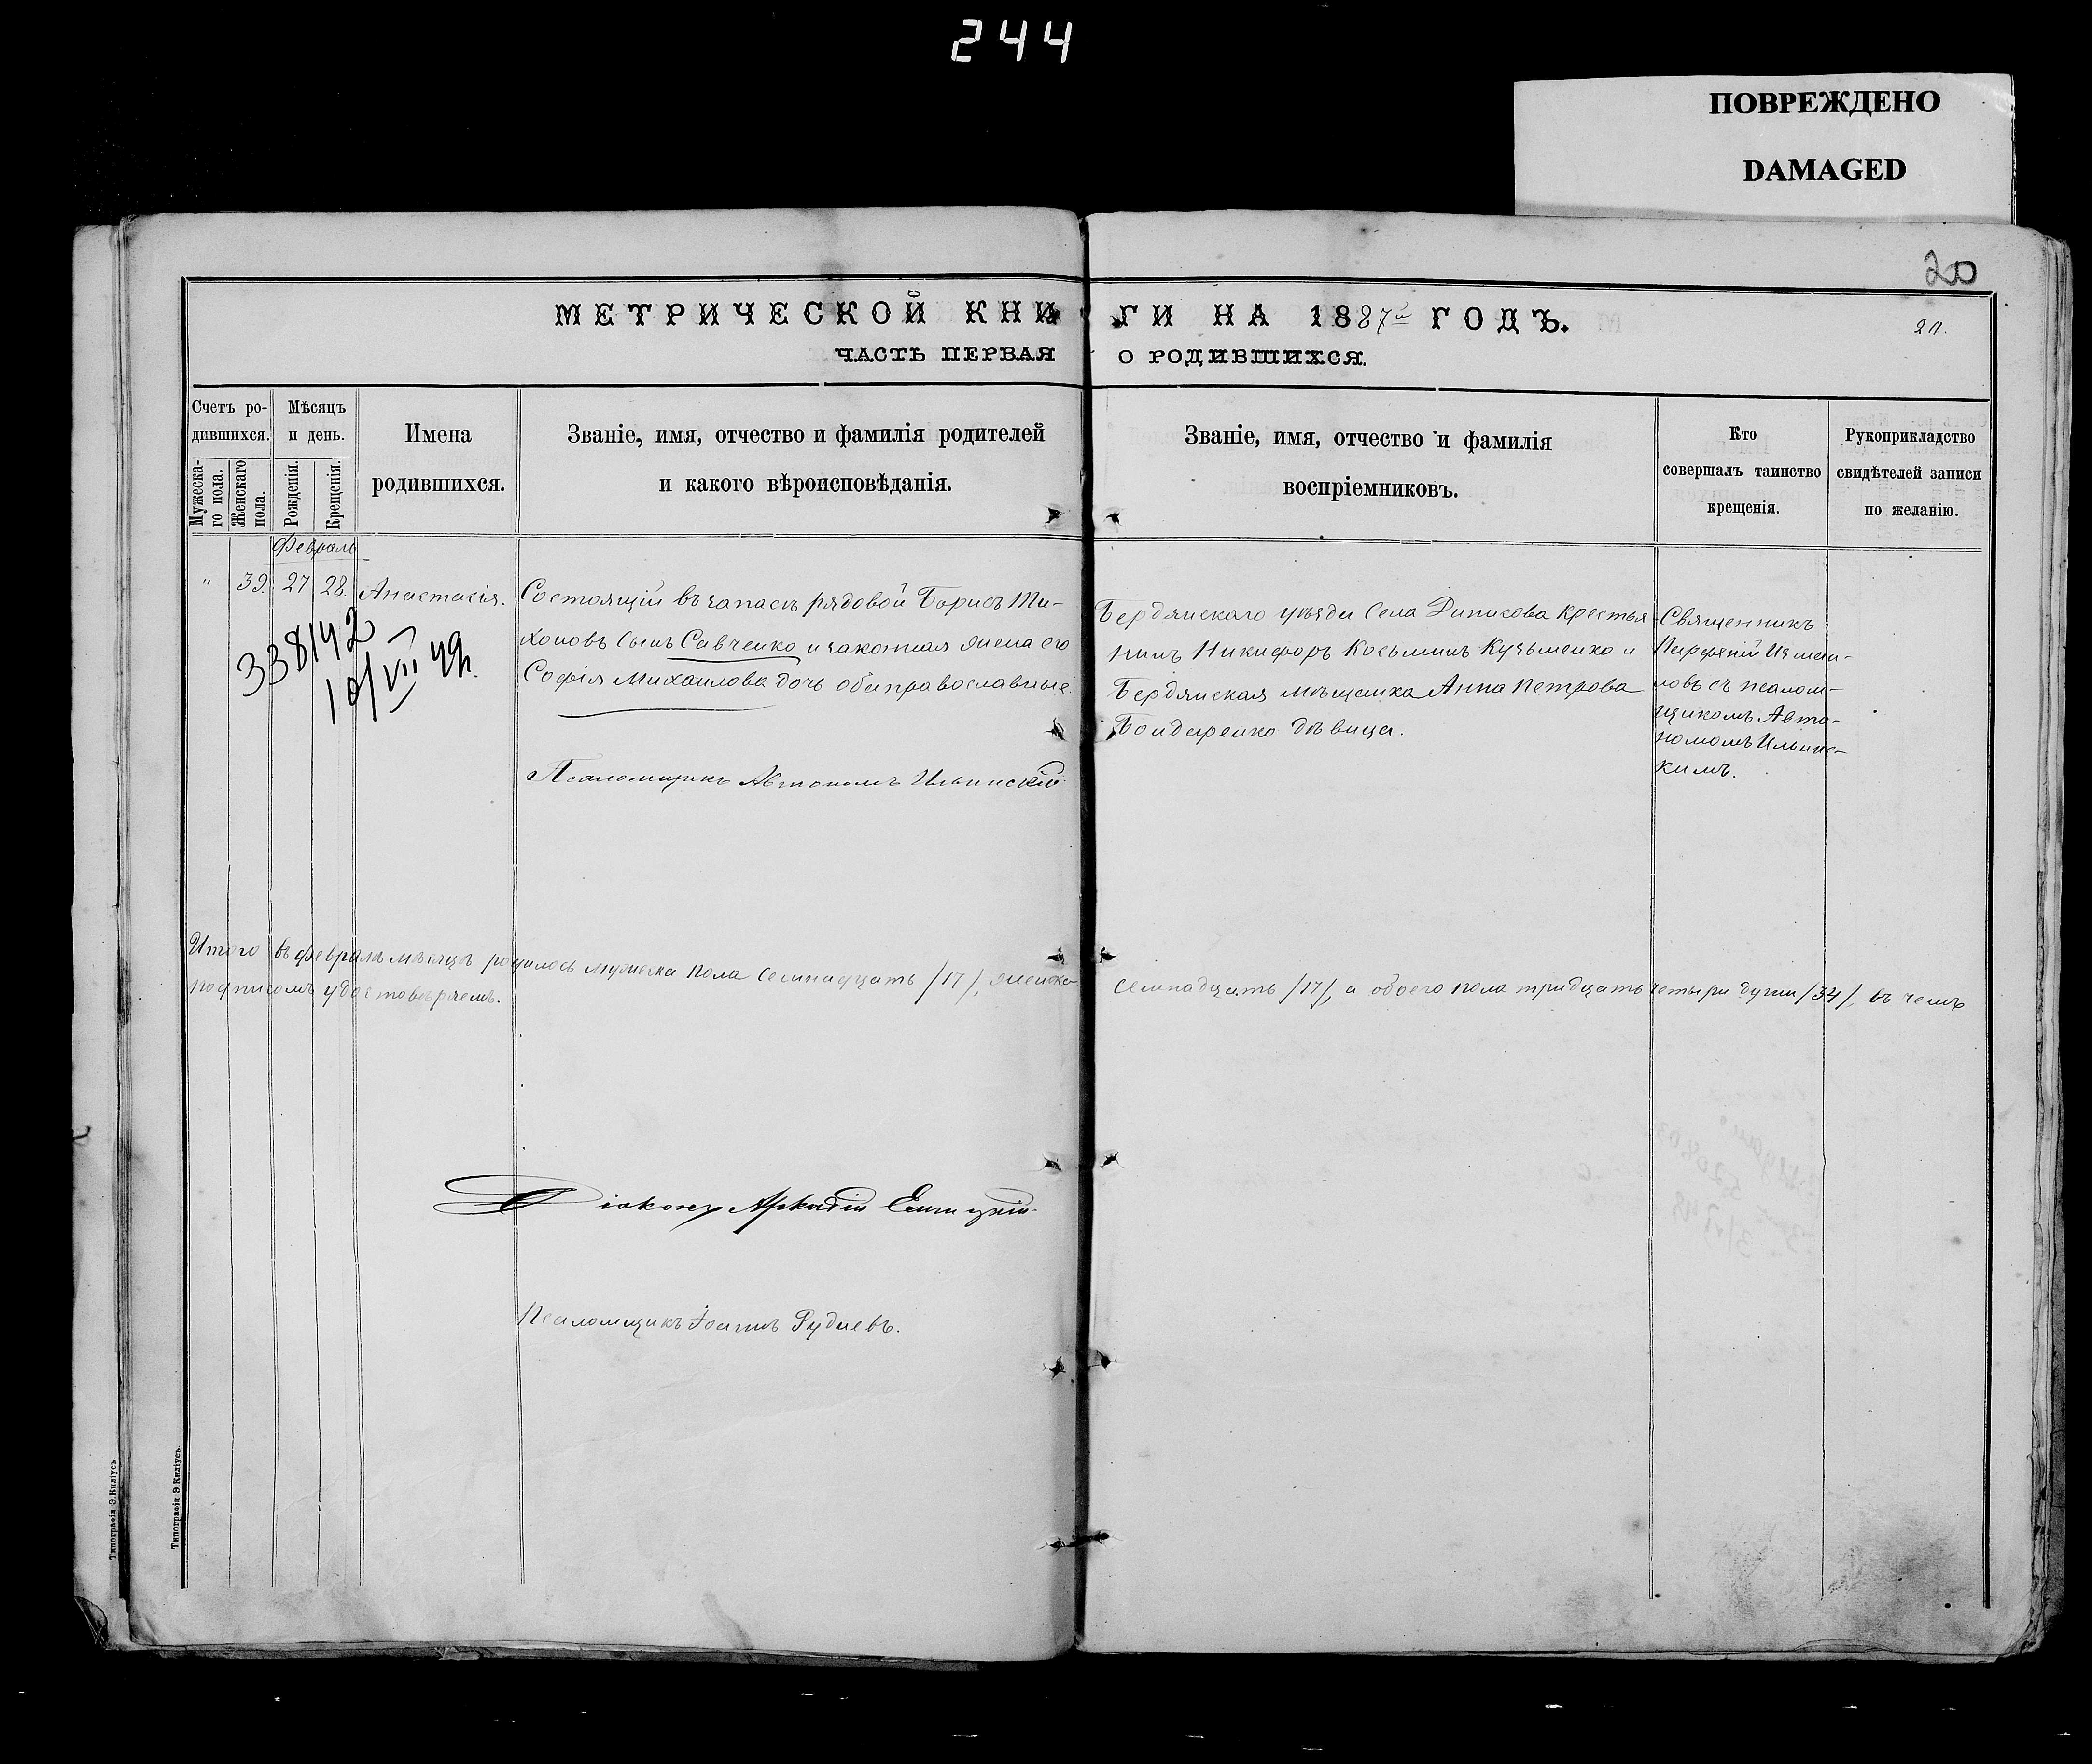 244
ПОВРЕЖДЕНО
DAMAGED
20
МЕТРИЧЕСКОЙ КНИГИ НА 1887й ГОДЪ.
20.
ЧАСТЬ ПЕРВАЯ О РОДИВШИХСЯ.
Счетъ ро-
дившихся.
Мужеска-
го пола.
Женскаго
пола.
Мѣсяцъ
и день.
Рожденія.
Крещенія.
Имена
родившихся.
Званіе, имя, отчество и фамилія родителей
и какого вѣроисповѣданія.
Званіе, имя, отчество и фамилія
воспріемниковъ.
Кто
совершалъ таинство
крещенія.
Рукоприкладство
свидѣтелей записи
по желанію.
Февраль
" 39. 27 28. Анастасія.
338142
10/VII 49г.
Состоящій въ запасѣ рядовой Борисъ Ти-
хоновъ сынъ Савченко и законная жена его
Софія Михаилова дочь оба православные.
Псаломщикъ Автономъ Ильинскій
Бердянскаго уѣзда села Денисова крестья-
нинъ Никифоръ Косьминъ Кузьменко и
Бердянская мѣщанка Анна Петрова
Бондаренко дѣвица.
Священникъ
Парфеній Измаи-
ловъ съ псалом-
щикомъ Авто-
номомъ Ильинс-
кимъ.
Итого въ февралѣ мѣсяцѣ родилось мужеска пола семнадцать /17/, женска семнадцать /17/, а обоего пола тридцать четыре души /34/, въ чемъ
подписомъ удостовѣряемъ.
Діаконъ Аркадій
Псаломщикъ Іоаннъ Рудневъ.
Типографія Э.Киліусъ.
Типографія Э.Киліусъ.